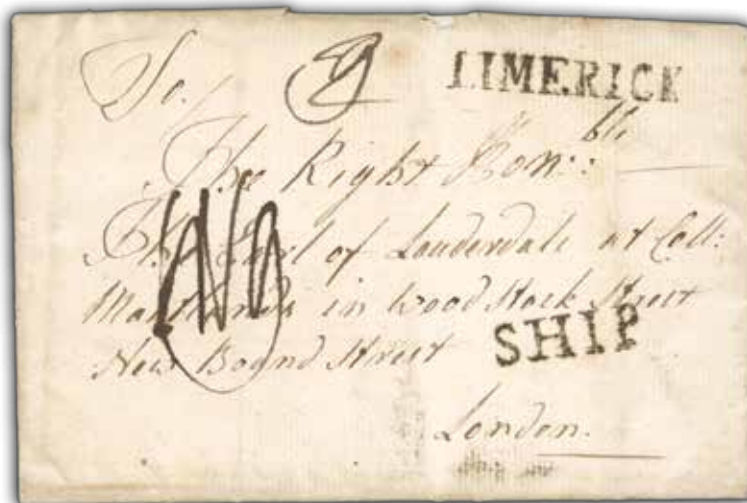 To. LIMERICK
The Right Hon:ble
The Earl of Lauderdale at Coll:
Maitlands in Wood Stock Street
New Bound Street SHIP
London.